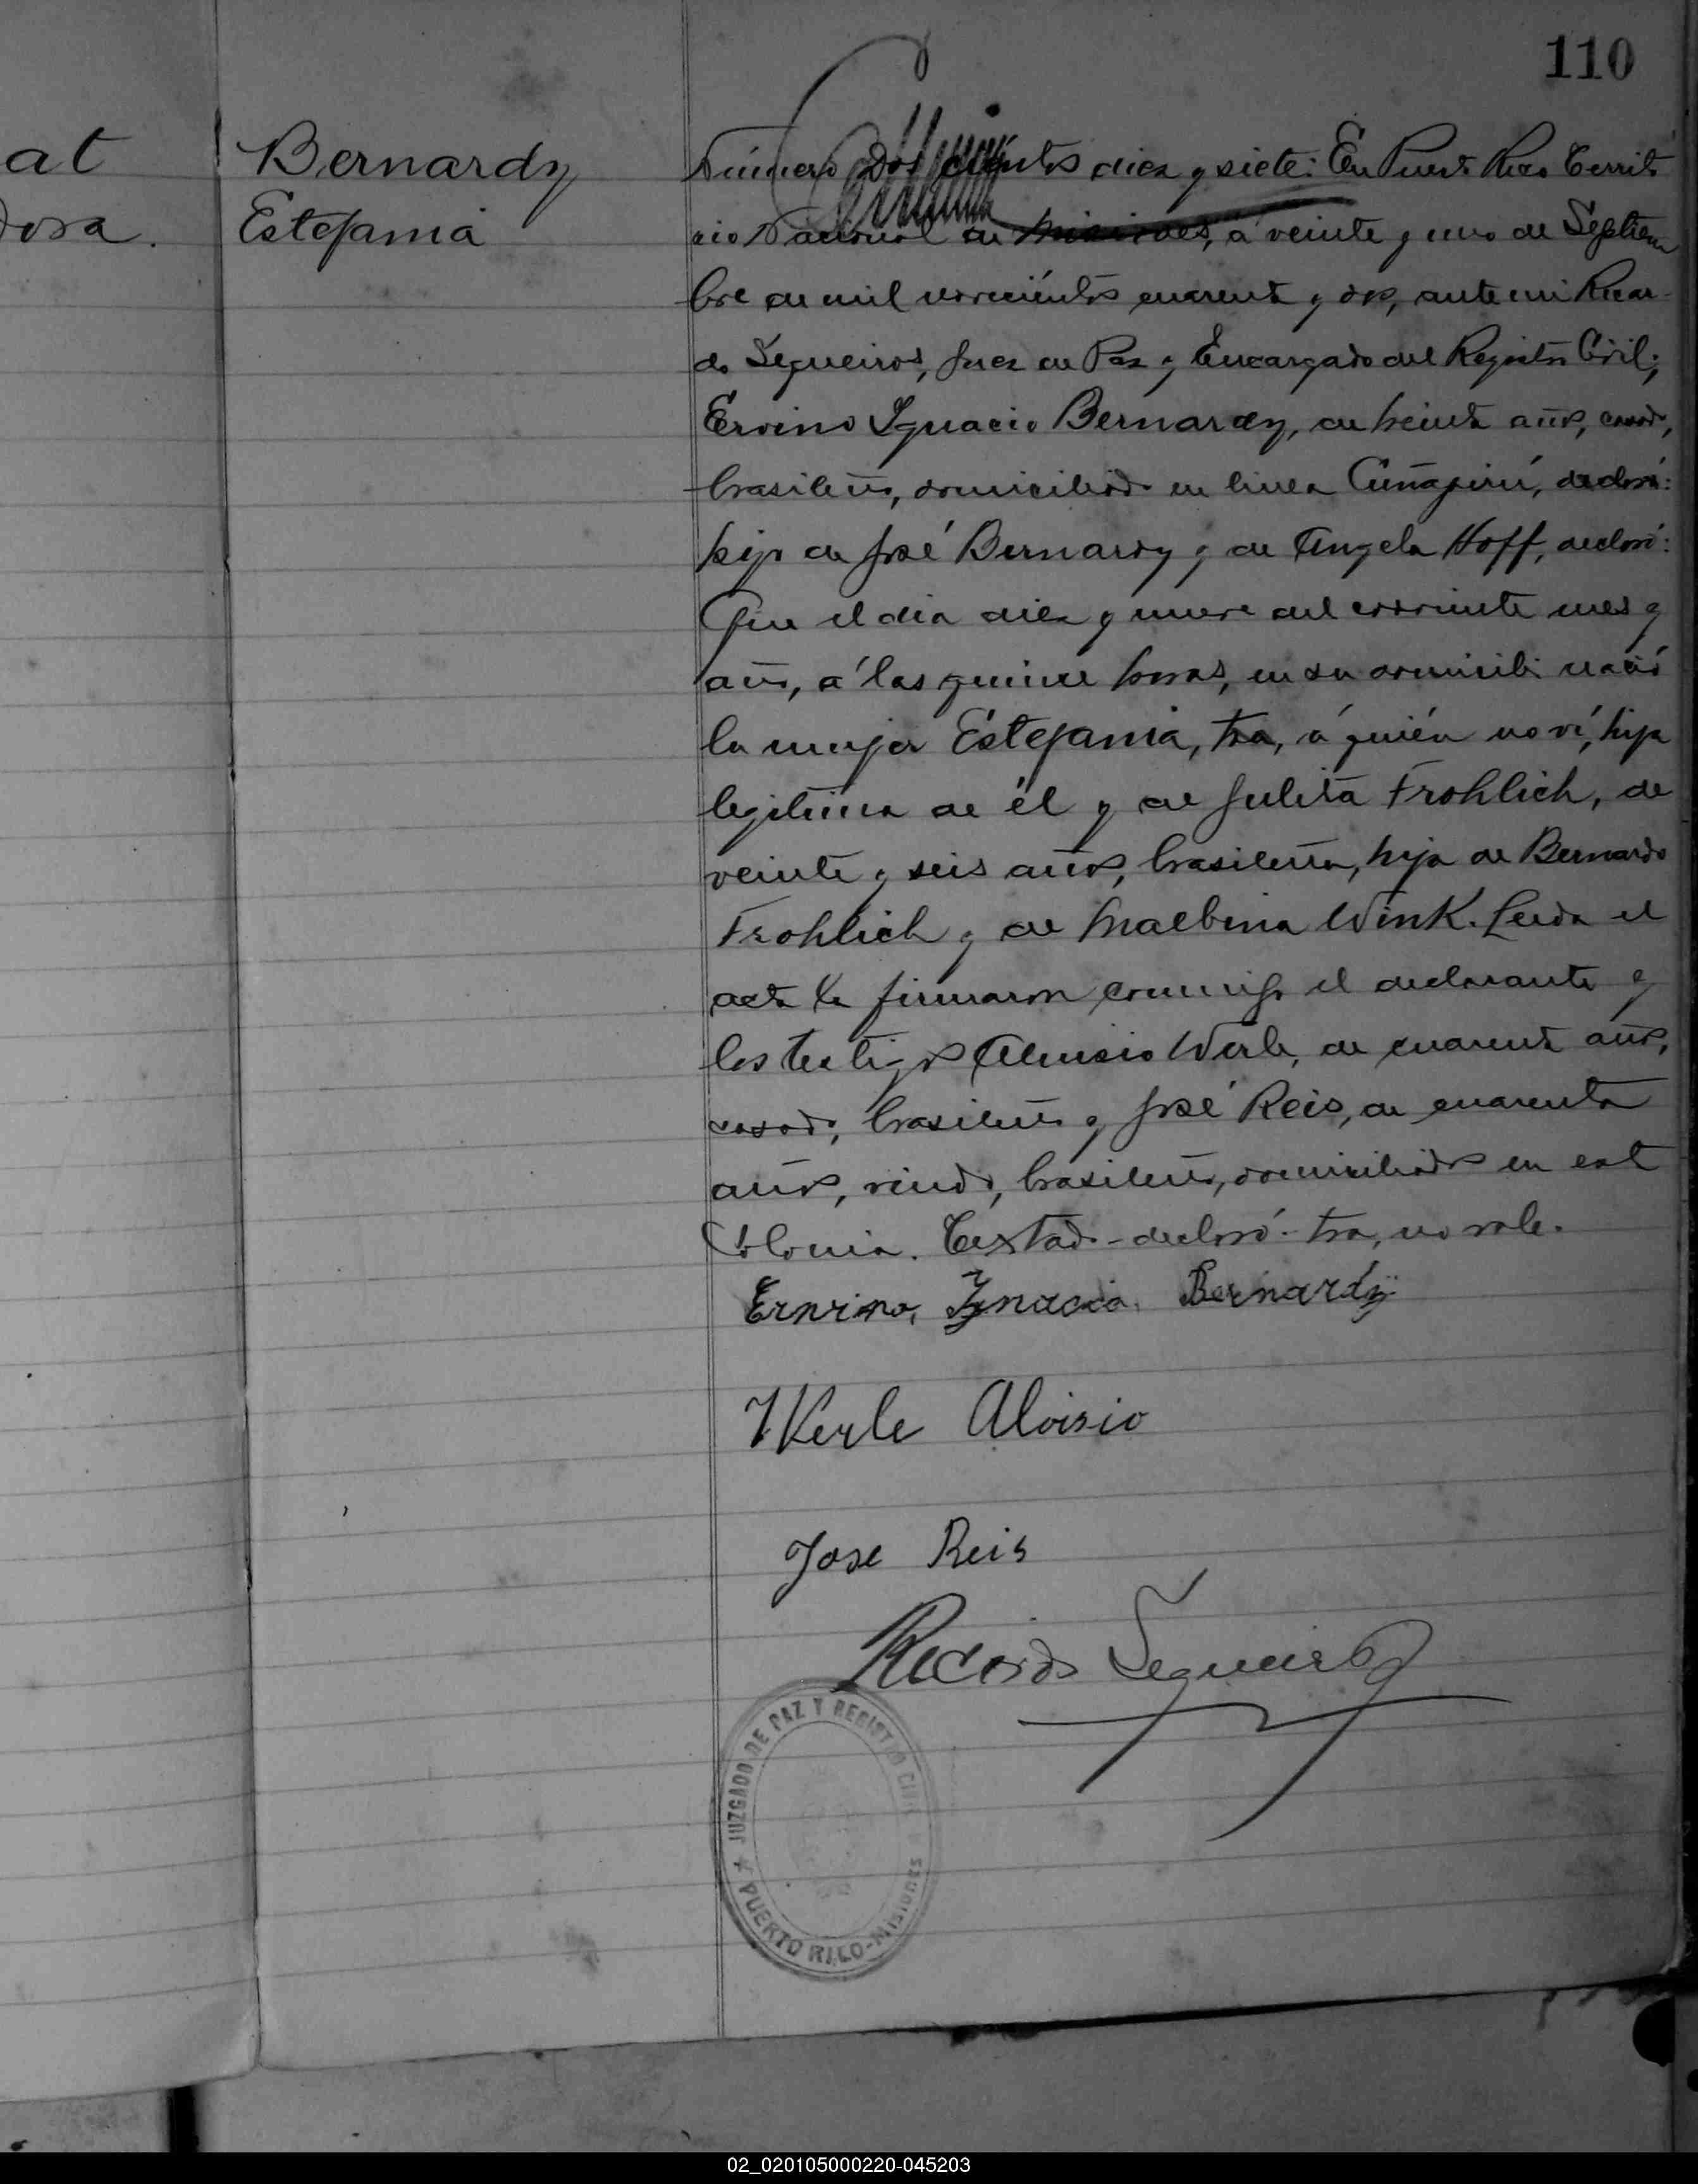 110
at
dora.
Bernardy
Estefania
Número Dos cientos diez y siete: En Puerto Rico Territo
rio Nacional de Misiones, á veinte y uno de Septiem
bre de mil novecientos cuarenta y dos, ante mi Ricar-
do Segueiros, Juez de Paz y Encargado del Registro Civil;
Ervino Ygnacio Bernardy, de treinta años, casado,
brasileño, domiciliado en linea Cuñapirú, declaró:
hijo de José Bernardy y de Angela Hoff, declaró:
Que el dia diez y nueve del corriente mes y
año, á las quince horas, en su domicilio nació
la mujer Estefania, tra, á quién no ví, hija
legitima de él y de Julita Frohlich, de
veinte y seis años, brasileña, hija de Bernardo
Frohlich y de Maelbina Wink. Leida el
acta la firmaron conmigo el declarante y
los testigos Aluisio Werle, de cuarenta años,
casado, brasileño y José Reis, de cuarenta
años, viudo, brasileño, domiciliados en esta
Colonia. Testado - declaró - tra, no vale.
Ervino Ignacio Bernardy
Werle Aloisio
Jose Reis
Ricardo Segueiros
JUZGADO DE PAZ Y REGISTRO CIVIL
PUERTO RICO - MISIONES
02_020105000220-045203